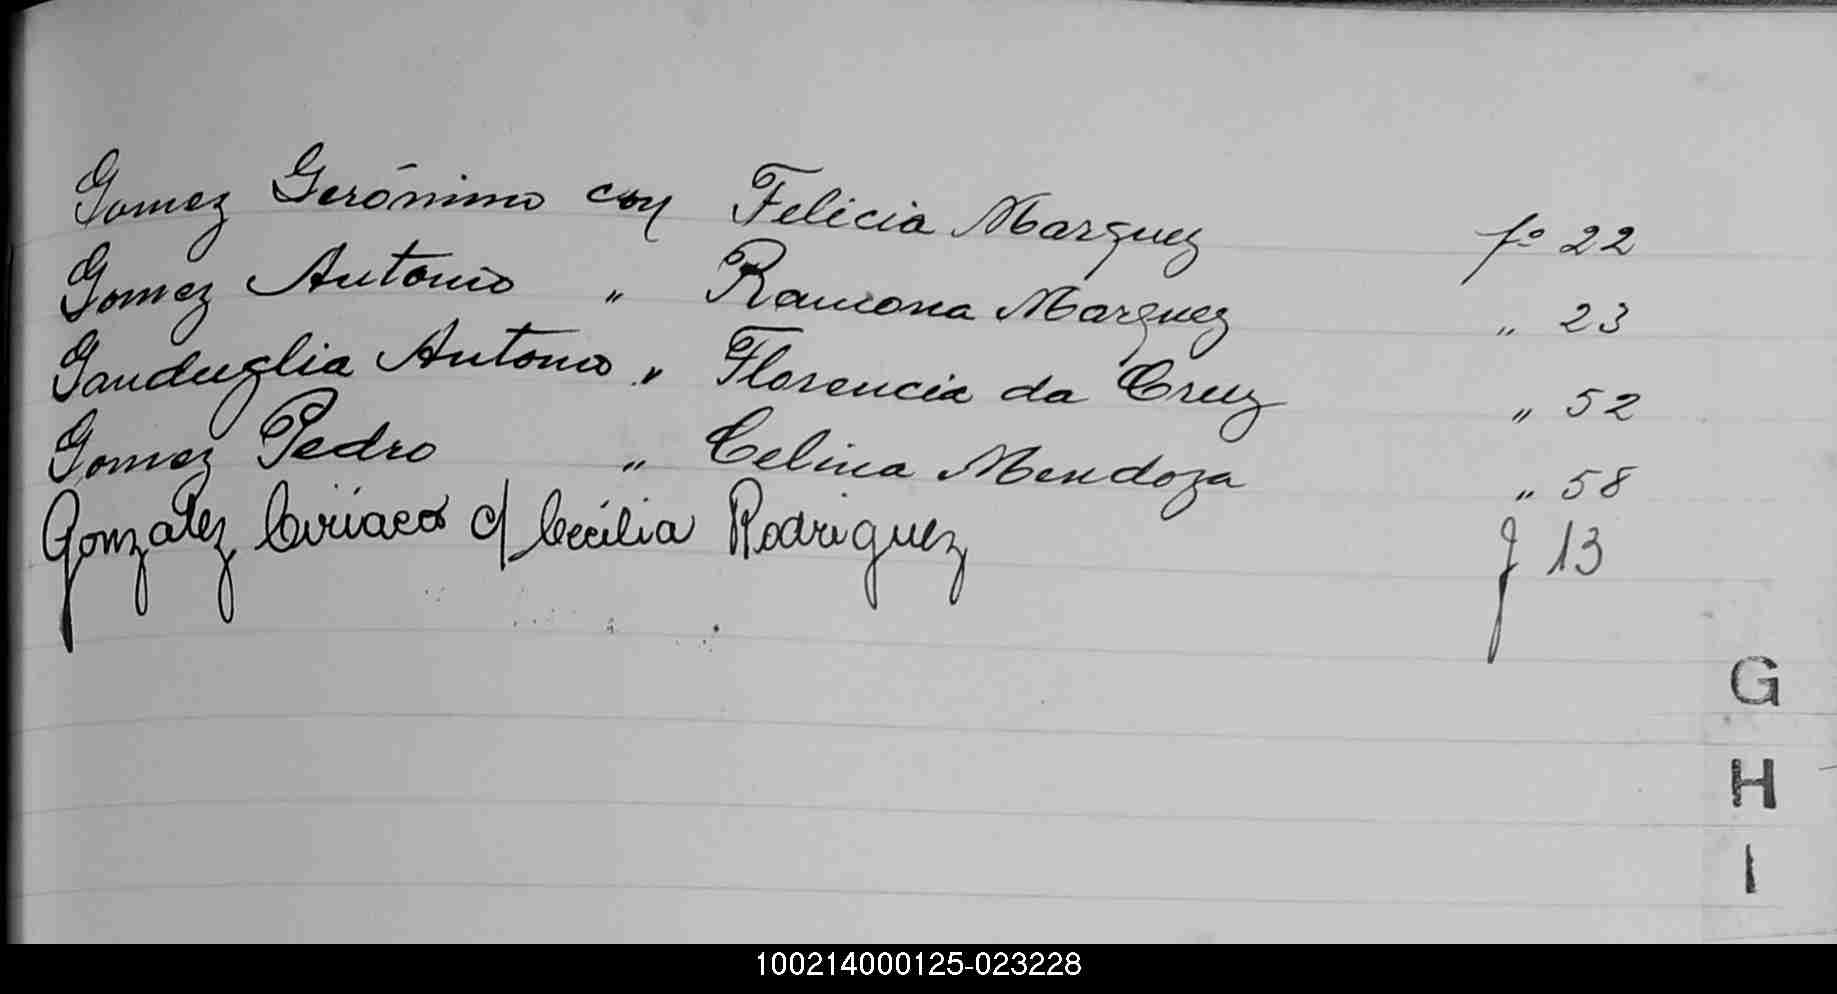 Gomez Gerónimo con Felicia Marquez fo 22
Gomez Antonio " Ramona Marquez " 23
Ganduglia Antonio " Florencia da Cruz " 52
Gomez Pedro " Celina Mendoza " 58
Gonzalez Ciriaco c/ Cecilia Rodriguez f 13
G
H
I
100214000125-023228